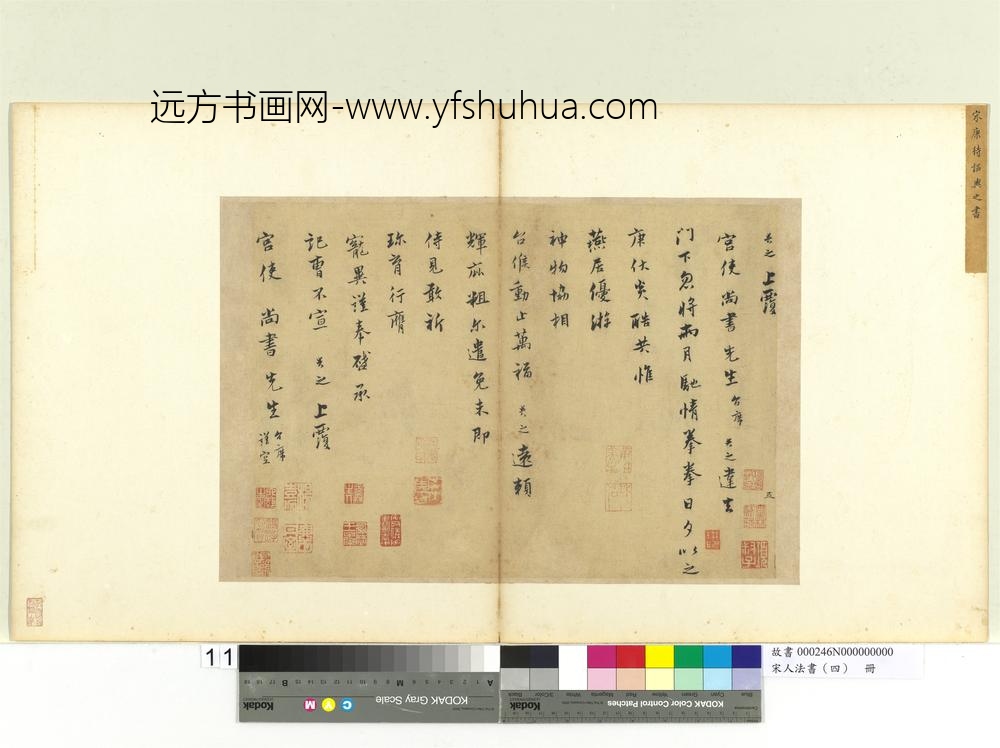 远方书画网-www.yfshuhua.com
宋康待詔與之書
與之 上覆
宮使 尚書 先生 台席 與之 違去
門下忽將兩月馳情拳拳日夕以之
庚伏炎酷共惟
燕居優游
神物協相
台候動止萬福 與之 遠賴
輝庥粗尔遣免未即
侍見敢祈
珍育行膺
寵異謹奉啓承
記曹不宣 與之 上覆
宮使 尚書 先生 台席
謹空
五
11
故書 000246N000000000
宋人法書(四) 冊
KODAK Gray Scale
Kodak
C Y M
A 1 2 3 4 5 6 M 8 9 10 11 12 13 14 15 B 17 18 19
KODAK Color Control Patches
Kodak
Blue Cyan Green Yellow Red Magenta White 3/Color Black